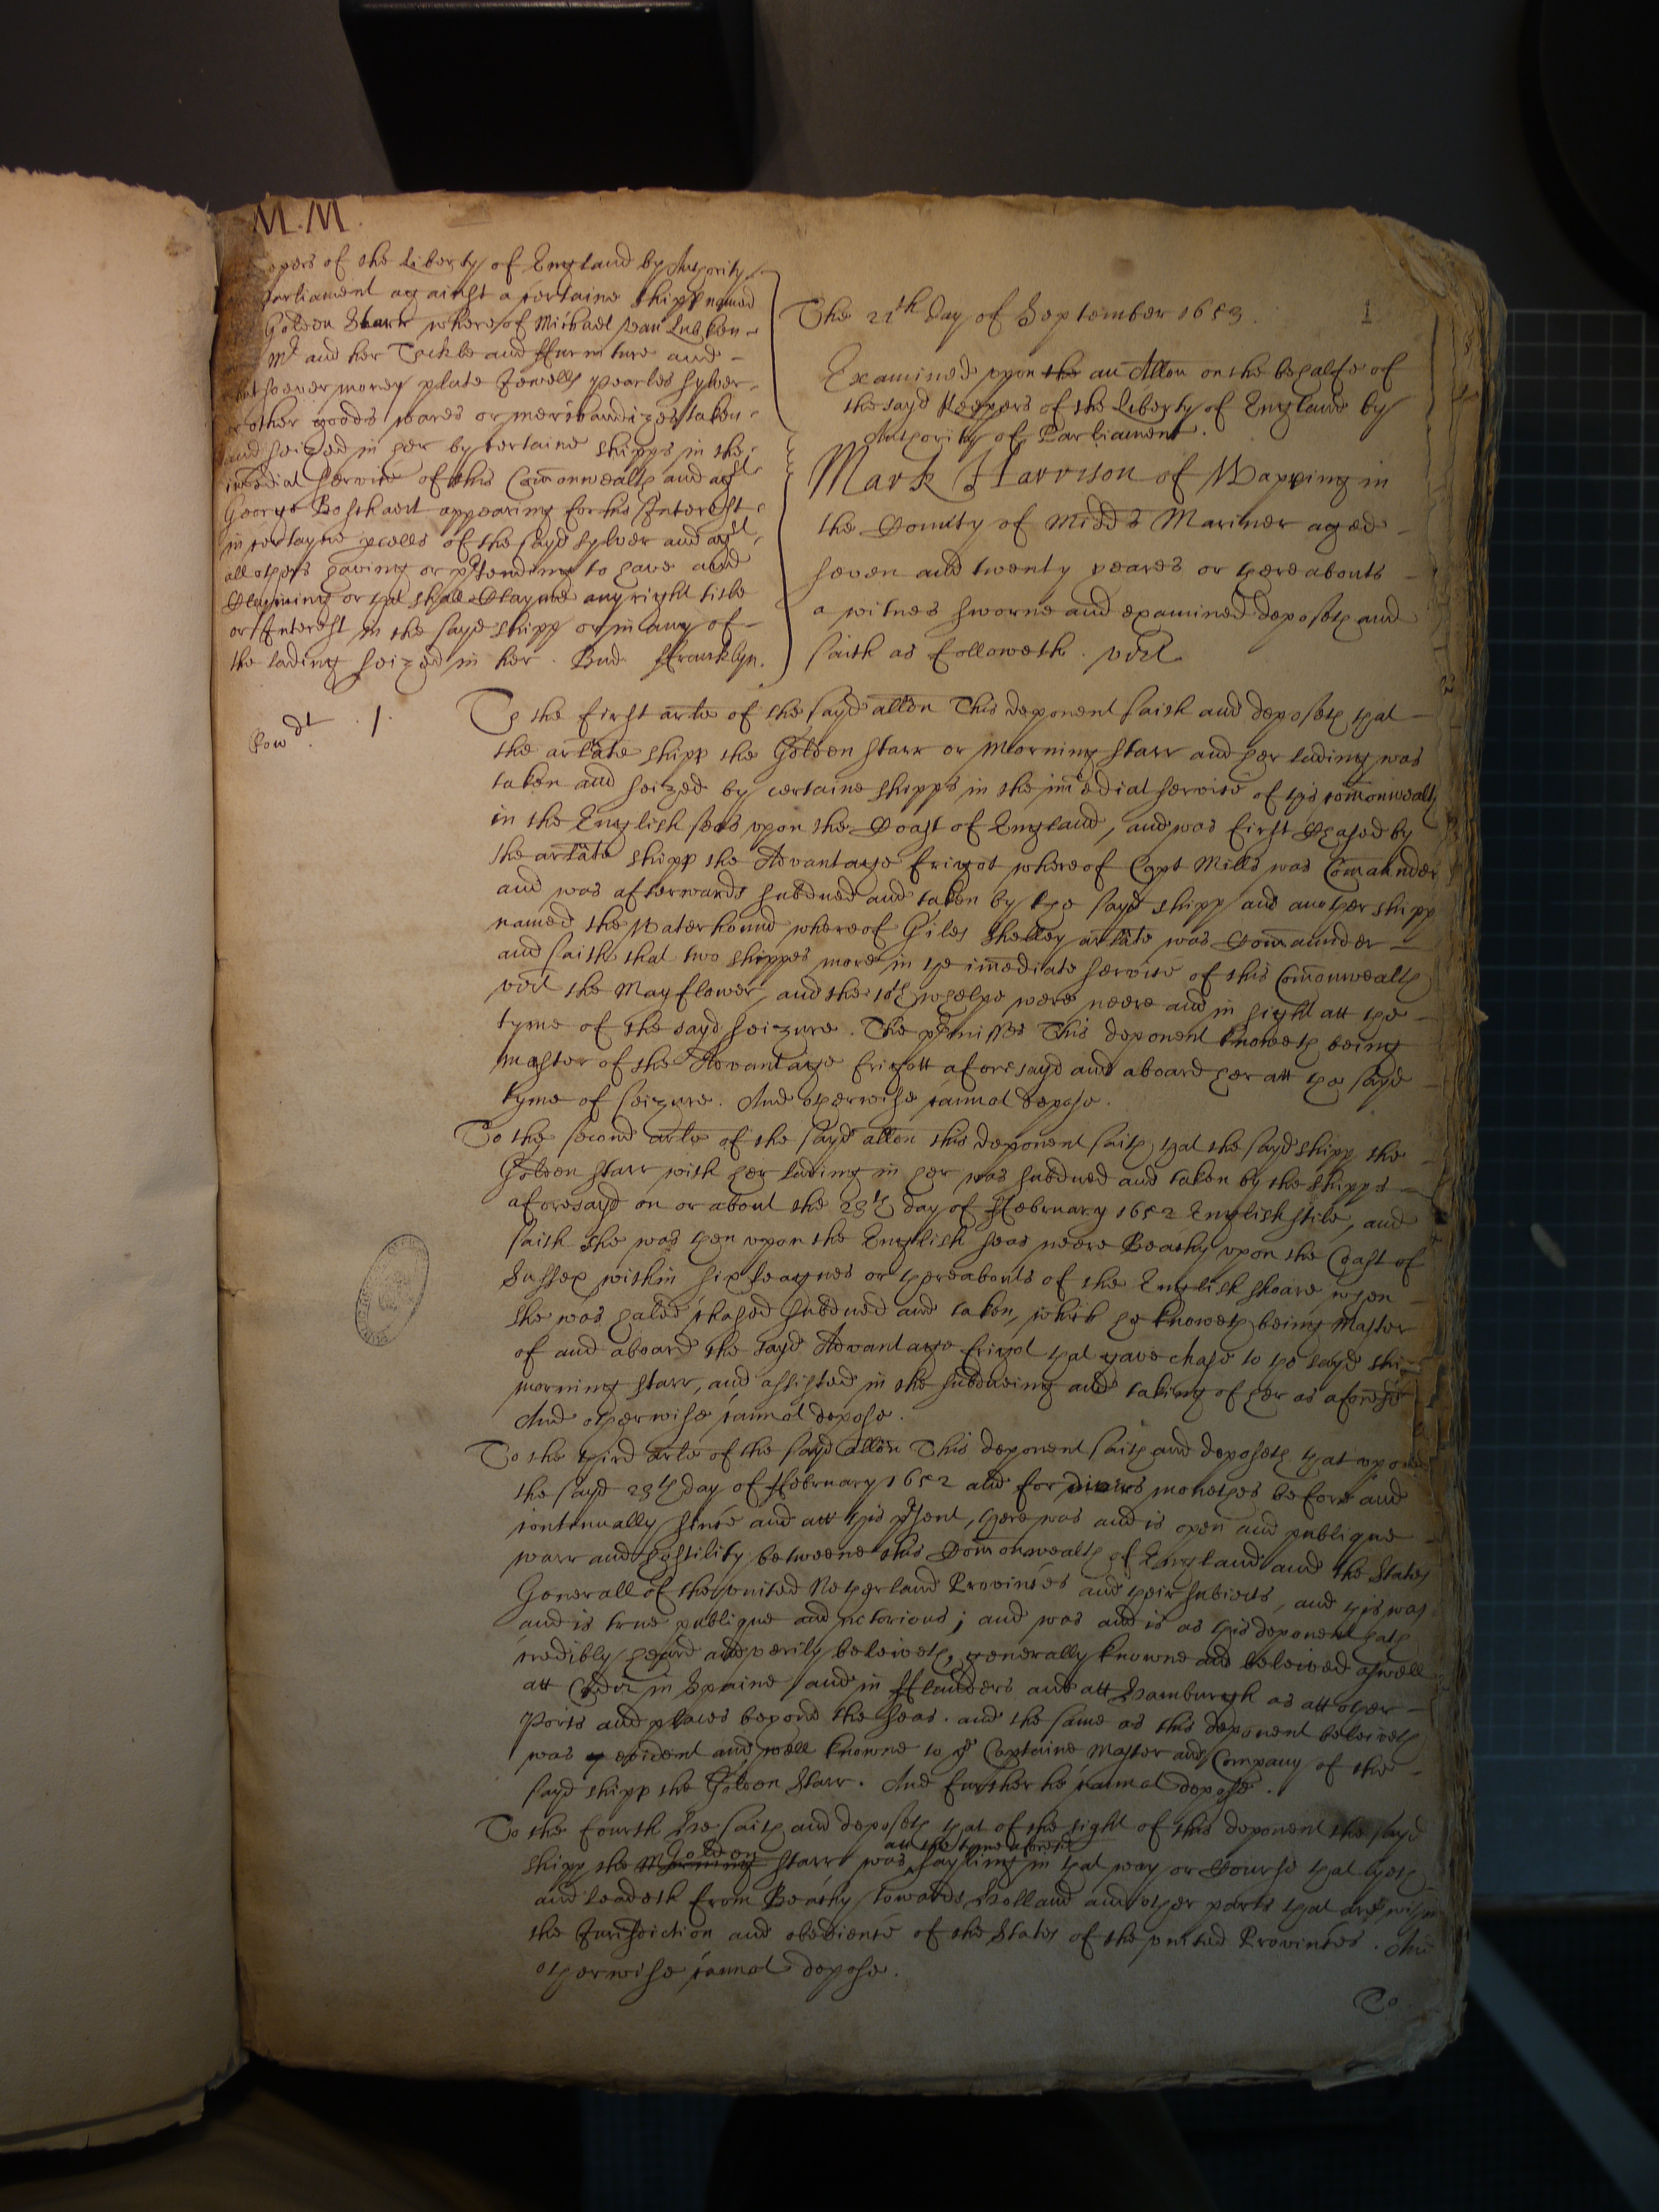 M.M.
epers of the Liberty of England by Authority
Parliament against a certaine shipp named
Golden Starr whereof Michael van Lubken
Mr and her Tackle and ffurniture and
whatsoever money plate Jewells pearles sylver
or other goods wares or merchandizes taken
and seized in her by certaine shipps in the
imediat service of this Comonwealth and agst
George Boschaert appearing for his Interest
in certayne pcells of the sayd sylver and agst
all others having or ptending to have and
Clayming or that shall Clayme any right title
or Interest in the sayd shipp or in any of
the lading seized in her. Bud. ffrancklyn.
The 21th day of September 1653. 1
Examined upon the an Allon on the behalfe of
the sayd Keepers of the Liberty of England by
Authority of Parliament.
Mark Harrison of Wapping in
the County of Midds Mariner aged
seven and twenty yeares or thereabouts
a witnes sworne and examined deposeth and
saith as followeth. vizt
Row dt. 1.
To the first arle of the sayd allon This deponent saith and deposeth that
the arlate shipp the Golden Starr or Morning Starr and her lading was
taken and seized by certaine shipps in the imediat service of this comonwealth
in the English seas upon the Coast of England, and was first Chased by
the arlate shipp the Advantage frigot whereof Capt Mills was Comahnder
and was afterwards subdued and taken by the sayd shipp and another shipp
named the Waterhound whereof Giles Shelley arlate was Comaunder
and saith that two shippes more in the imediate service of this Comonwealth
vizt the May flower, and the 10th whelpe were neere and in sight att the
tyme of the sayd seizure. The pmisses This deponent knoweth being
master of the Advantage frigott aforesayd and aboard her att the sayd
tyme of seizure. And otherwise cannot depose.
To the second arle of the sayd allon this deponent saith that the sayd shipp the
Golden Starr with her lading in her was subdued and taken by the shipps
aforesayd on or about the 28th day of ffebruary 1652 English stile, and
saith she was then upon the English seas neere Beachy upon the Coast of
Sussex within six leagues or thereabouts of the English shoare when
she was haled chased subdued and taken, which he knoweth being Master
of and aboard the sayd Advantage frigot that gave chase to the sayd shi
morning starr, and assisted in the subdueing and taking of her as aforesd
And otherwise cannot depose.
To the third arle of the sayd allon This deponent saith and deposeth that upon
the sayd 28th day of ffebruary 1652 and for divers monethes before and
continually since and att this psent, there was and is open and publique
warr and hostility betweene this Comonwealth of England and the States
Generall of the United Netherland Provinces and their subiects, and this was
and is true publique and notorious; and was and is as this deponent hath
credibly heard and verily beleiveth, generally knowne and beleived aswell
att Cadiz in Spaine and in fflanders and att Hamburgh as att other
Ports and places beyond the seas. and the same as this deponent beleiveth
was evident and well knowne to ye Captaine Master and Company of the
sayd shipp the Golden Starr. And further he cannot depose.
To the fourth He saith and deposeth that of the sight of this deponent the sayd
shipp the Morning Golden Starr was att the tyme aforesd sayling in that way or Course that lyeth
and leadeth from Beachy towards Holland and other parts that are within
the Jurisdiction and obedience of the States of the united Provinces. And
otherwise cannot depose.
To